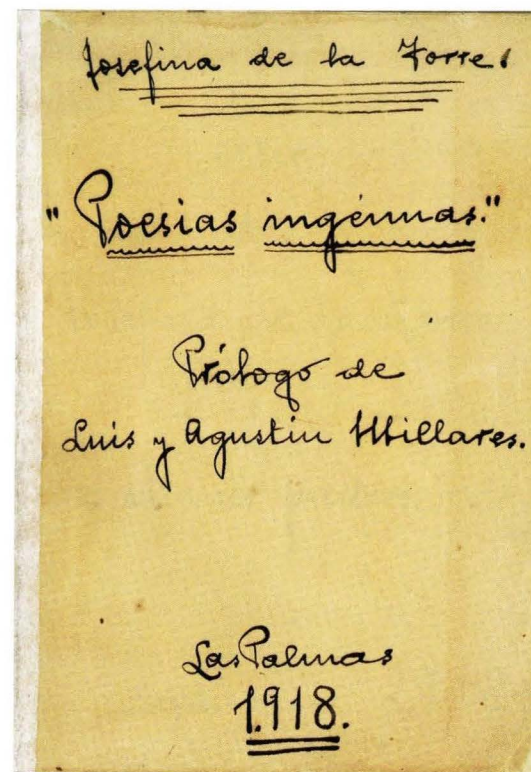 Josefina de la Torre.
"Poesias ingénuas."
Prólogo de
Luis y Agustin Millares.
Las Palmas
1.918.